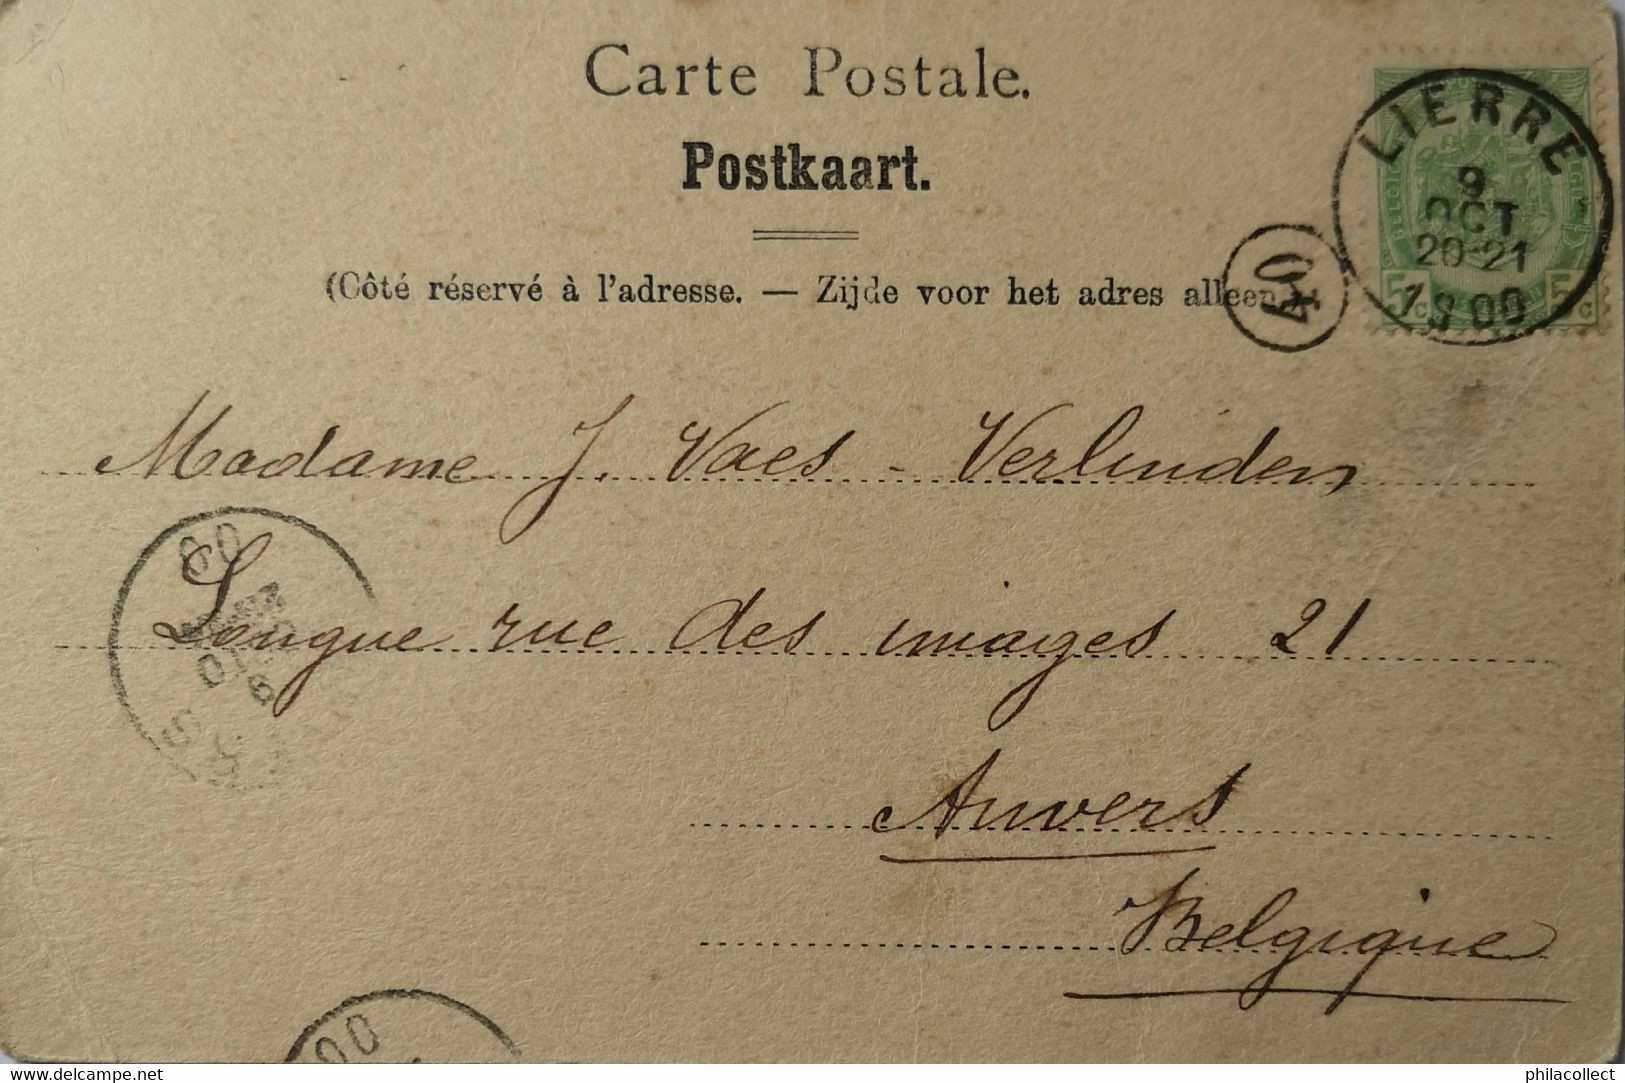 Carte Postale.
Postkaart.
(Côté réservé à l'adresse. — Zijde voor het adres alleen.)
LIERRE
9
OCT
20-21
1900
40
5c 5c
Madame J. Vaes - Verlinden,
Longue rue des images 21
Anvers
Belgique
00
00
www.delcampe.net
philacollect